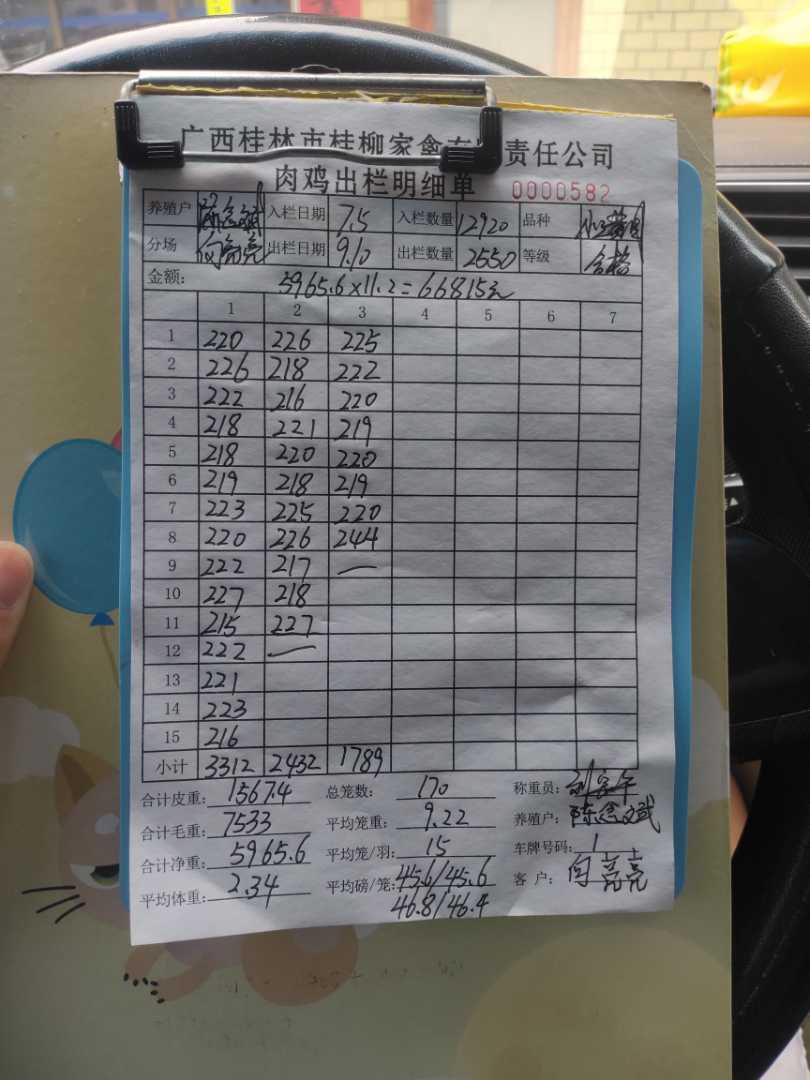 广西桂林市桂柳家禽有 责任公司
肉鸡出栏明细单 0000582
养殖户 入栏日期 7.5 入栏数量 12920 品种
分场 闫亮亮 出栏日期 9.10 出栏数量 2550 等级 合格
金额: 5965.6×11.2=66815元
1 2 3 4 5 6 7
1 220 226 225
2 226 218 222
3 222 216 220
4 218 221 219
5 218 220 220
6 219 218 219
7 223 225 220
8 220 226 244
9 222 217 —
10 227 218
11 215 227
12 222 —
13 221
14 223
15 216
小计 3312 2432 1789
合计皮重: 1567.4 总笼数: 170 称重员:
合计毛重: 7533 平均笼重: 9.22 养殖户: 陈念斌
合计净重: 5965.6 平均笼/羽: 15 车牌号码: 1
平均体重: 2.34 平均磅/笼: 45.6/45.6 客 户: 闫亮亮
46.8/46.4